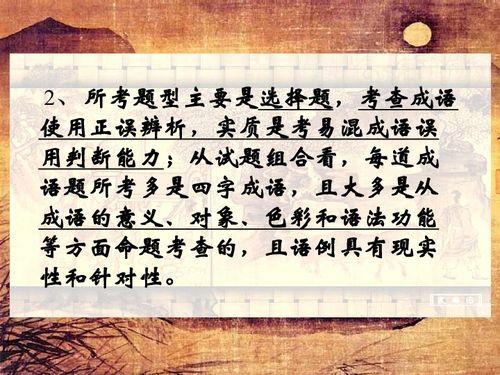 2、所考题型主要是选择题，考查成语
使用正误辨析，实质是考易混成语误
用判断能力；从试题组合看，每道成
语题所考多是四字成语，且大多是从
成语的意义、对象、色彩和语法功能
等方面命题考查的，且语例具有现实
性和针对性。